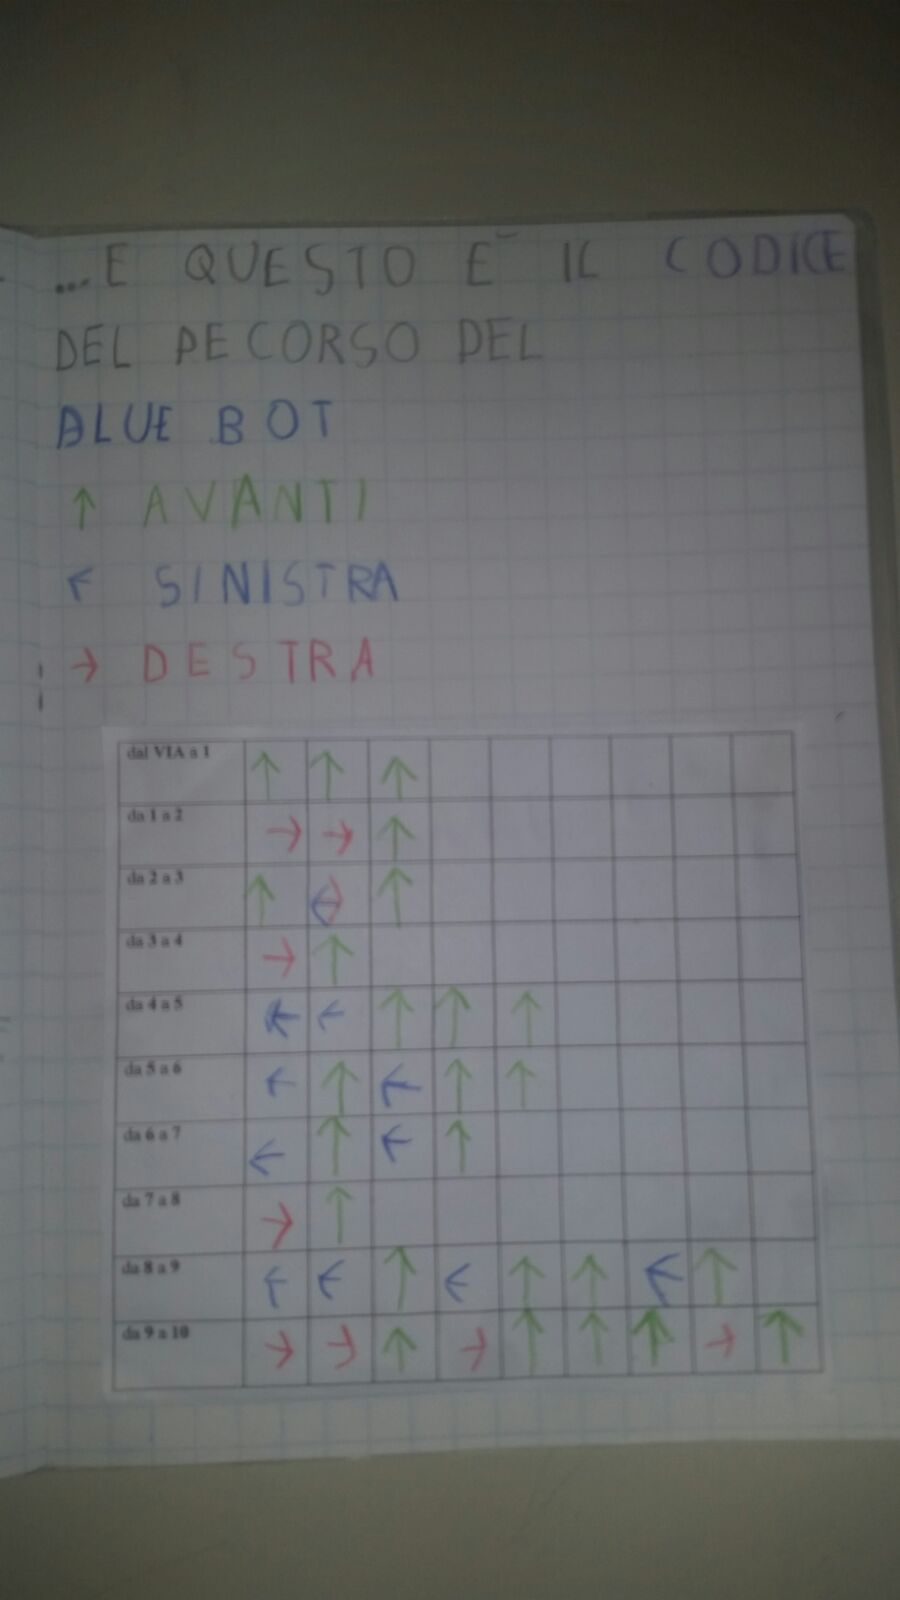 ...E QUESTO E' IL CODICE
DEL PECORSO DEL
BLUE BOT
↑ AVANTI
← SINISTRA
→ DESTRA
dal VIA a 1 ↑ ↑ ↑
da 1 a 2 → → ↑
da 2 a 3 ↑ ← ↑
da 3 a 4 → ↑
da 4 a 5 ← ← ↑ ↑ ↑
da 5 a 6 ← ↑ ← ↑ ↑
da 6 a 7 ← ↑ ← ↑
da 7 a 8 → ↑
da 8 a 9 ← ← ↑ ← ↑ ↑ ← ↑
da 9 a 10 → → ↑ → ↑ ↑ ↑ → ↑